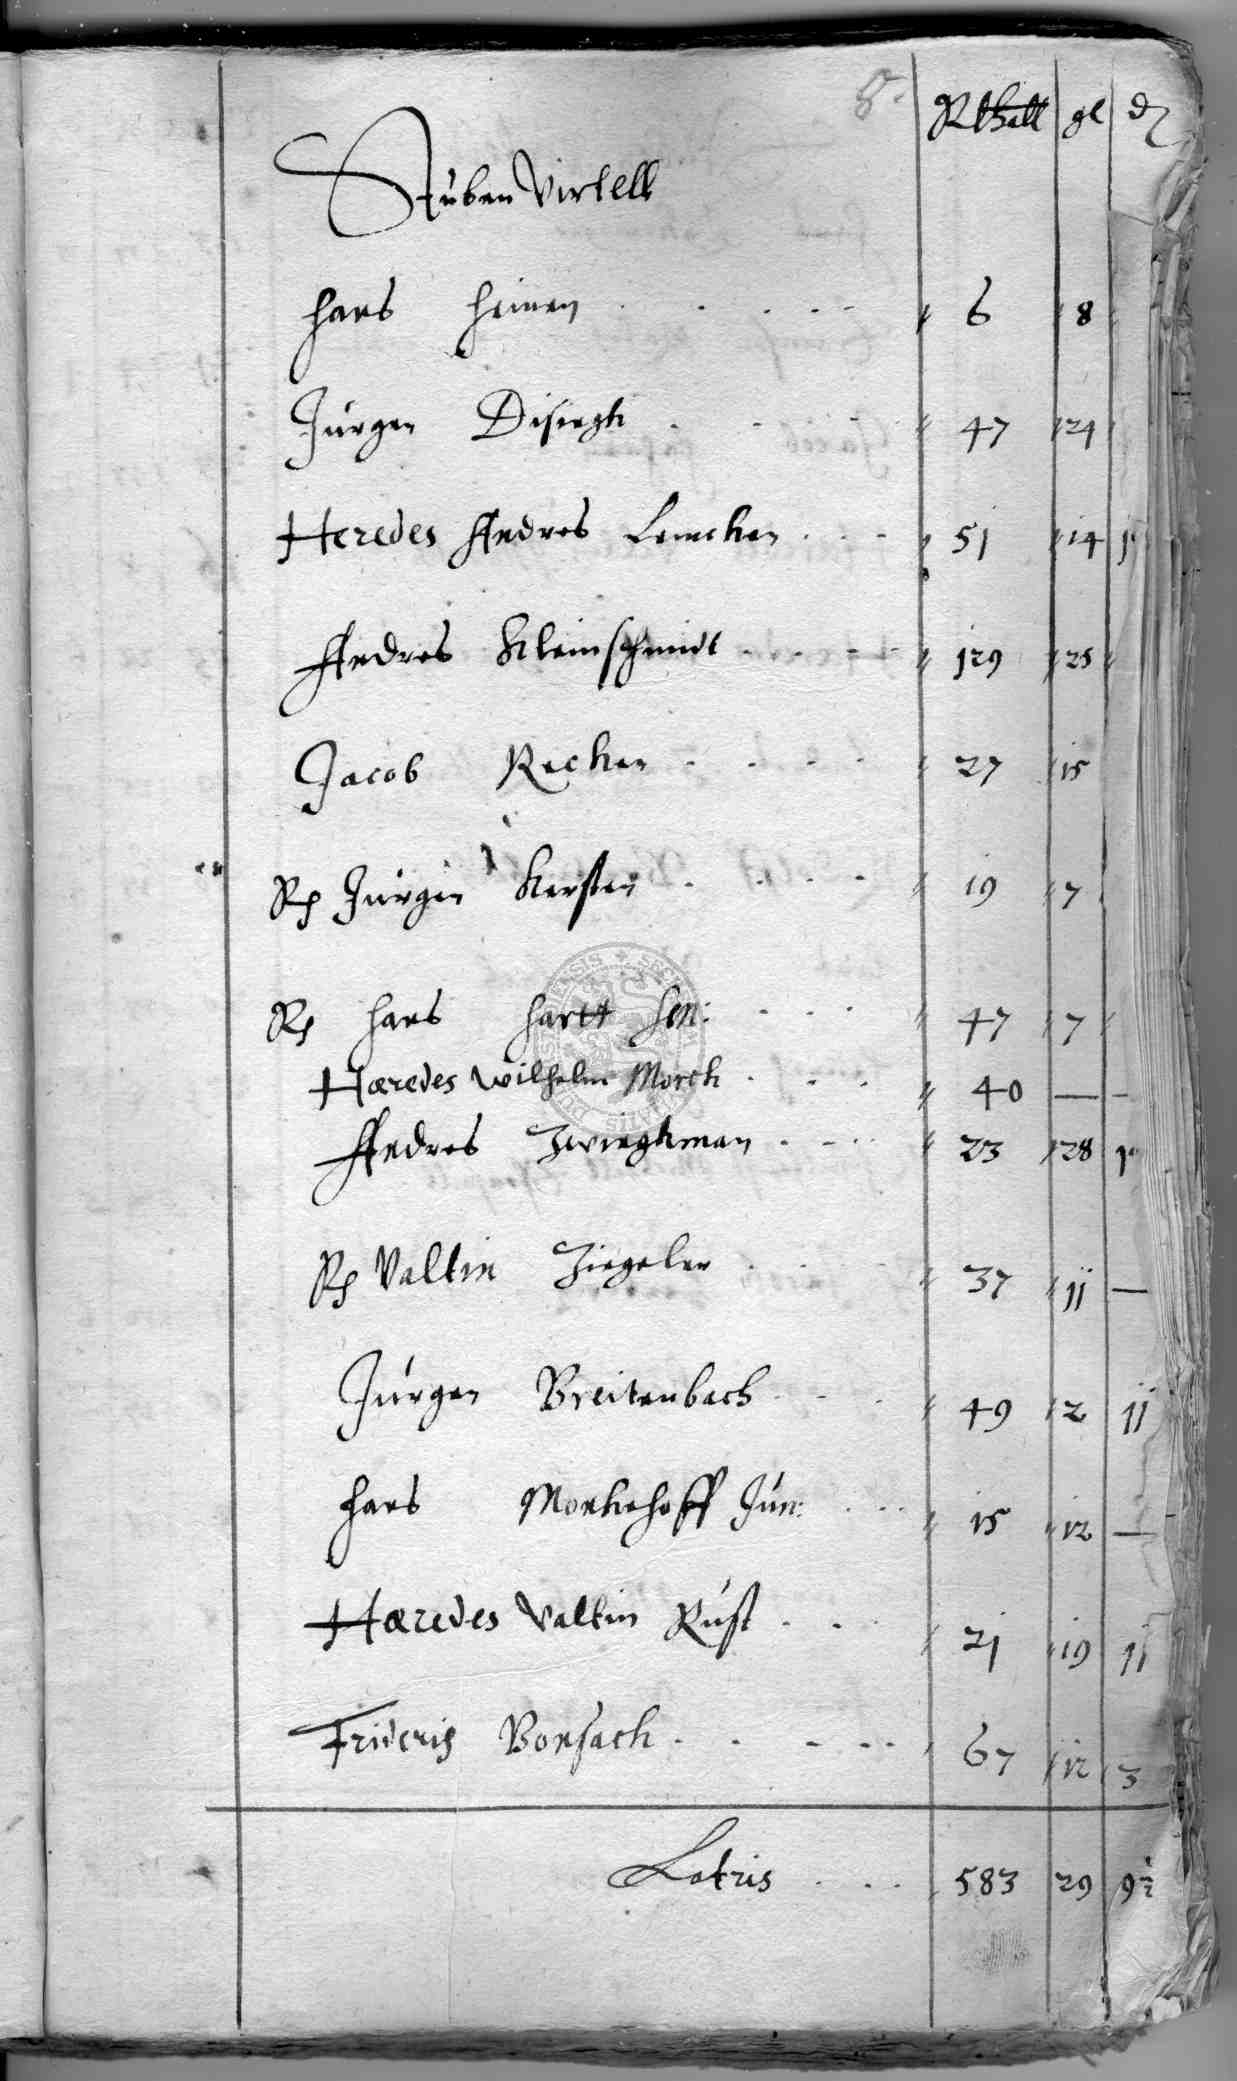 8.
Rthall gl d
Stuben Virtell
Hans Heinen . . . . . 6 8
Jürgen Disiegk . . . 47 24
Heredes Andres Lemcken . . . 51 14
Andres Kleinschmidt . . . . 129 25
Jacob Recken . . . . 27 15
Rp Jürgen Kersten . . . . 19 7
Rp Hans Hartt Sen: . . . 47 7
Hæredes Wilhelm Morck . . . 40 — —
Andres Zwiegkman . . . 23 28
Rp Valtin Ziegeler . . . 37 11 —
Jürgen Breitenbach . . . 49 2 11
Hans Monkehoff Jün: . . . 15 12 —
Hæredes Valtin Rust . . . 21 19 11
Friderig Bonsack . . . . . 67 12 3
Latris . . . 583 29 9½